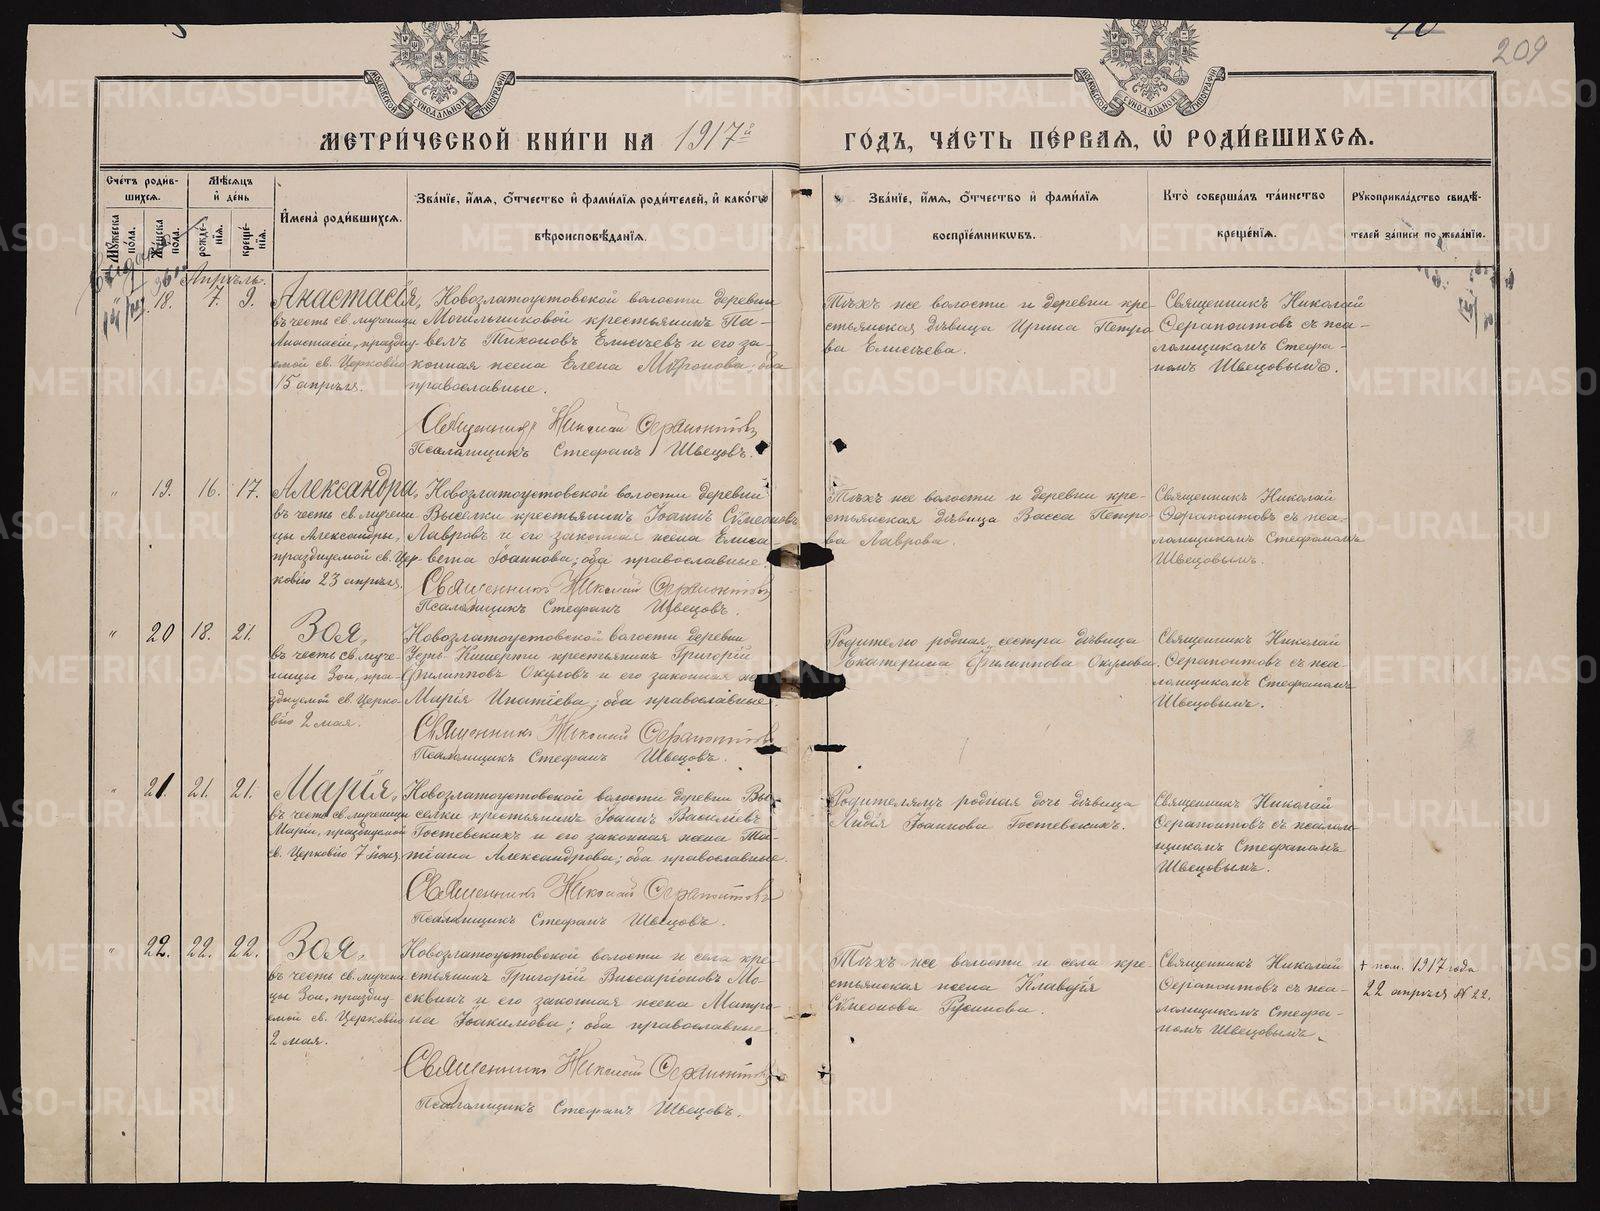 209
МОСКОВСКОЙ СѴНОДАЛЬНОЙ ТИПОГРАФІИ
МОСКОВСКОЙ СѴНОДАЛЬНОЙ ТИПОГРАФІИ
МЕТРИ́ЧЕСКОЙ КНИ́ГИ НА 1917й ГОДЪ, ЧА́СТЬ ПЕ́РВАѦ, Ѡ РОДИ́ВШИХСѦ.
Сче́тъ роди́в-
шихсѧ.
Мꙋжеска по́ла.
Же́нска пола.
Мѣ́сѧцъ
и҆ де́нь
рожде́-нїѧ.
креще́-нїѧ.
И҆мена̀ роди́вшихсѧ.
Зва́нїе, и҆́мѧ, ѻ҆́тчество и҆ фами́лїѧ роди́телей, и҆ како́гѡ
вѣроисповѣ́данїѧ.
Зва́нїе, и҆́мѧ, ѻ҆́тчество и҆ фами́лїѧ
воспрїе́мникѡвъ.
Кто̀ соверша́лъ та́инство
креще́нїѧ.
Рꙋкоприкла́дство свидѣ́-
телей за́писи по жела́нїю.
Апрѣль.
" 18. 7. 9.
Анастасія,
въ честь св. мученицы
Анастасіи, праздну
емой св. Церковію
15 апрѣля.
Новозлатоустовской волости деревни
Могильниковой крестьянинъ Па-
велъ Тихоновъ Елисѣевъ и его за-
конная жена Елена Миронова; оба
православные.
Священникъ Николай Серапонтовъ
Псаломщикъ Стефанъ Швецовъ.
Тѣхъ же волости и деревни кре-
стьянская дѣвица Ирина Петро
ва Елисѣева.
Священникъ Николай
Серапонтовъ съ пса-
ломщикомъ Стефа-
номъ Швецовымъ.
" 19. 16. 17.
Александра,
въ честь св. мучени
цы Александры,
празднуемой св. Цер-
ковію 23 апрѣля.
Новозлатоустовской волости деревни
Выселки крестьянинъ Іоаннъ Сѵмеоновъ
Лавровъ и его законная жена Елиса-
вета Іоаннова; оба православные.
Священникъ Николай Серапонтовъ
Псаломщикъ Стефанъ Швецовъ.
Тѣхъ же волости и деревни кре-
стьянская дѣвица Васса Петро-
ва Лаврова.
Священникъ Николай
Серапонтовъ съ пса-
ломщикомъ Стефаномъ
Швецовымъ.
" 20 18. 21.
Зоя,
въ честь св. муче-
ницы Зои, пра-
здуемой св. Церко-
вію 2 мая.
Новозлатоустовской волости деревни
Усть Кишерти крестьянинъ Григорій
Филипповъ Окуловъ и его законная же
Марія Ипатіева; оба православные.
Священникъ Николай Серапонтовъ
Псаломщикъ Стефанъ Швецовъ.
Родителю родная сестра дѣвица
Екатерина Филиппова Окулова.
Священникъ Николай
Серапонтовъ съ пса-
ломщикомъ Стефаномъ
Швецовымъ.
" 21. 21. 21.
Марія,
въ честь св. мученицы
Маріи, празднуемой
св. Церковію 7 іюня
Новозлатоустовской волости деревни Вы
селки крестьянинъ Іоаннъ Васильевъ
Гостевскихъ и его законная жена Та-
тіана Александрова; оба православные.
Священникъ Николай Серапонтовъ
Псаломщикъ Стефанъ Швецовъ.
Родителямъ родная дочь дѣвица
Лидія Іоаннова Гостевскихъ.
Священникъ Николай
Серапонтовъ съ псалом
щикомъ Стефаномъ
Швецовымъ.
" 22. 22. 22.
Зоя,
въ честь св. мучени
цы Зои, праздну-
емой св. Церковію
2 мая.
Новозлатоустовской волости и села кре-
стьянинъ Григорій Виссаріоновъ Мо-
сквинъ и его законная жена Матро
на Іоакимова; оба православные.
Священникъ Николай Серапонтовъ
Псаломщикъ Стефанъ Швецовъ.
Тѣхъ же волости и села кре-
стьянская жена Клавдія
Сѵмеонова Русинова.
Священникъ Николай
Серапонтовъ съ пса-
ломщикомъ Стефа-
номъ Швецовымъ.
+ пом. 1917 года
22 апрѣля № 22.